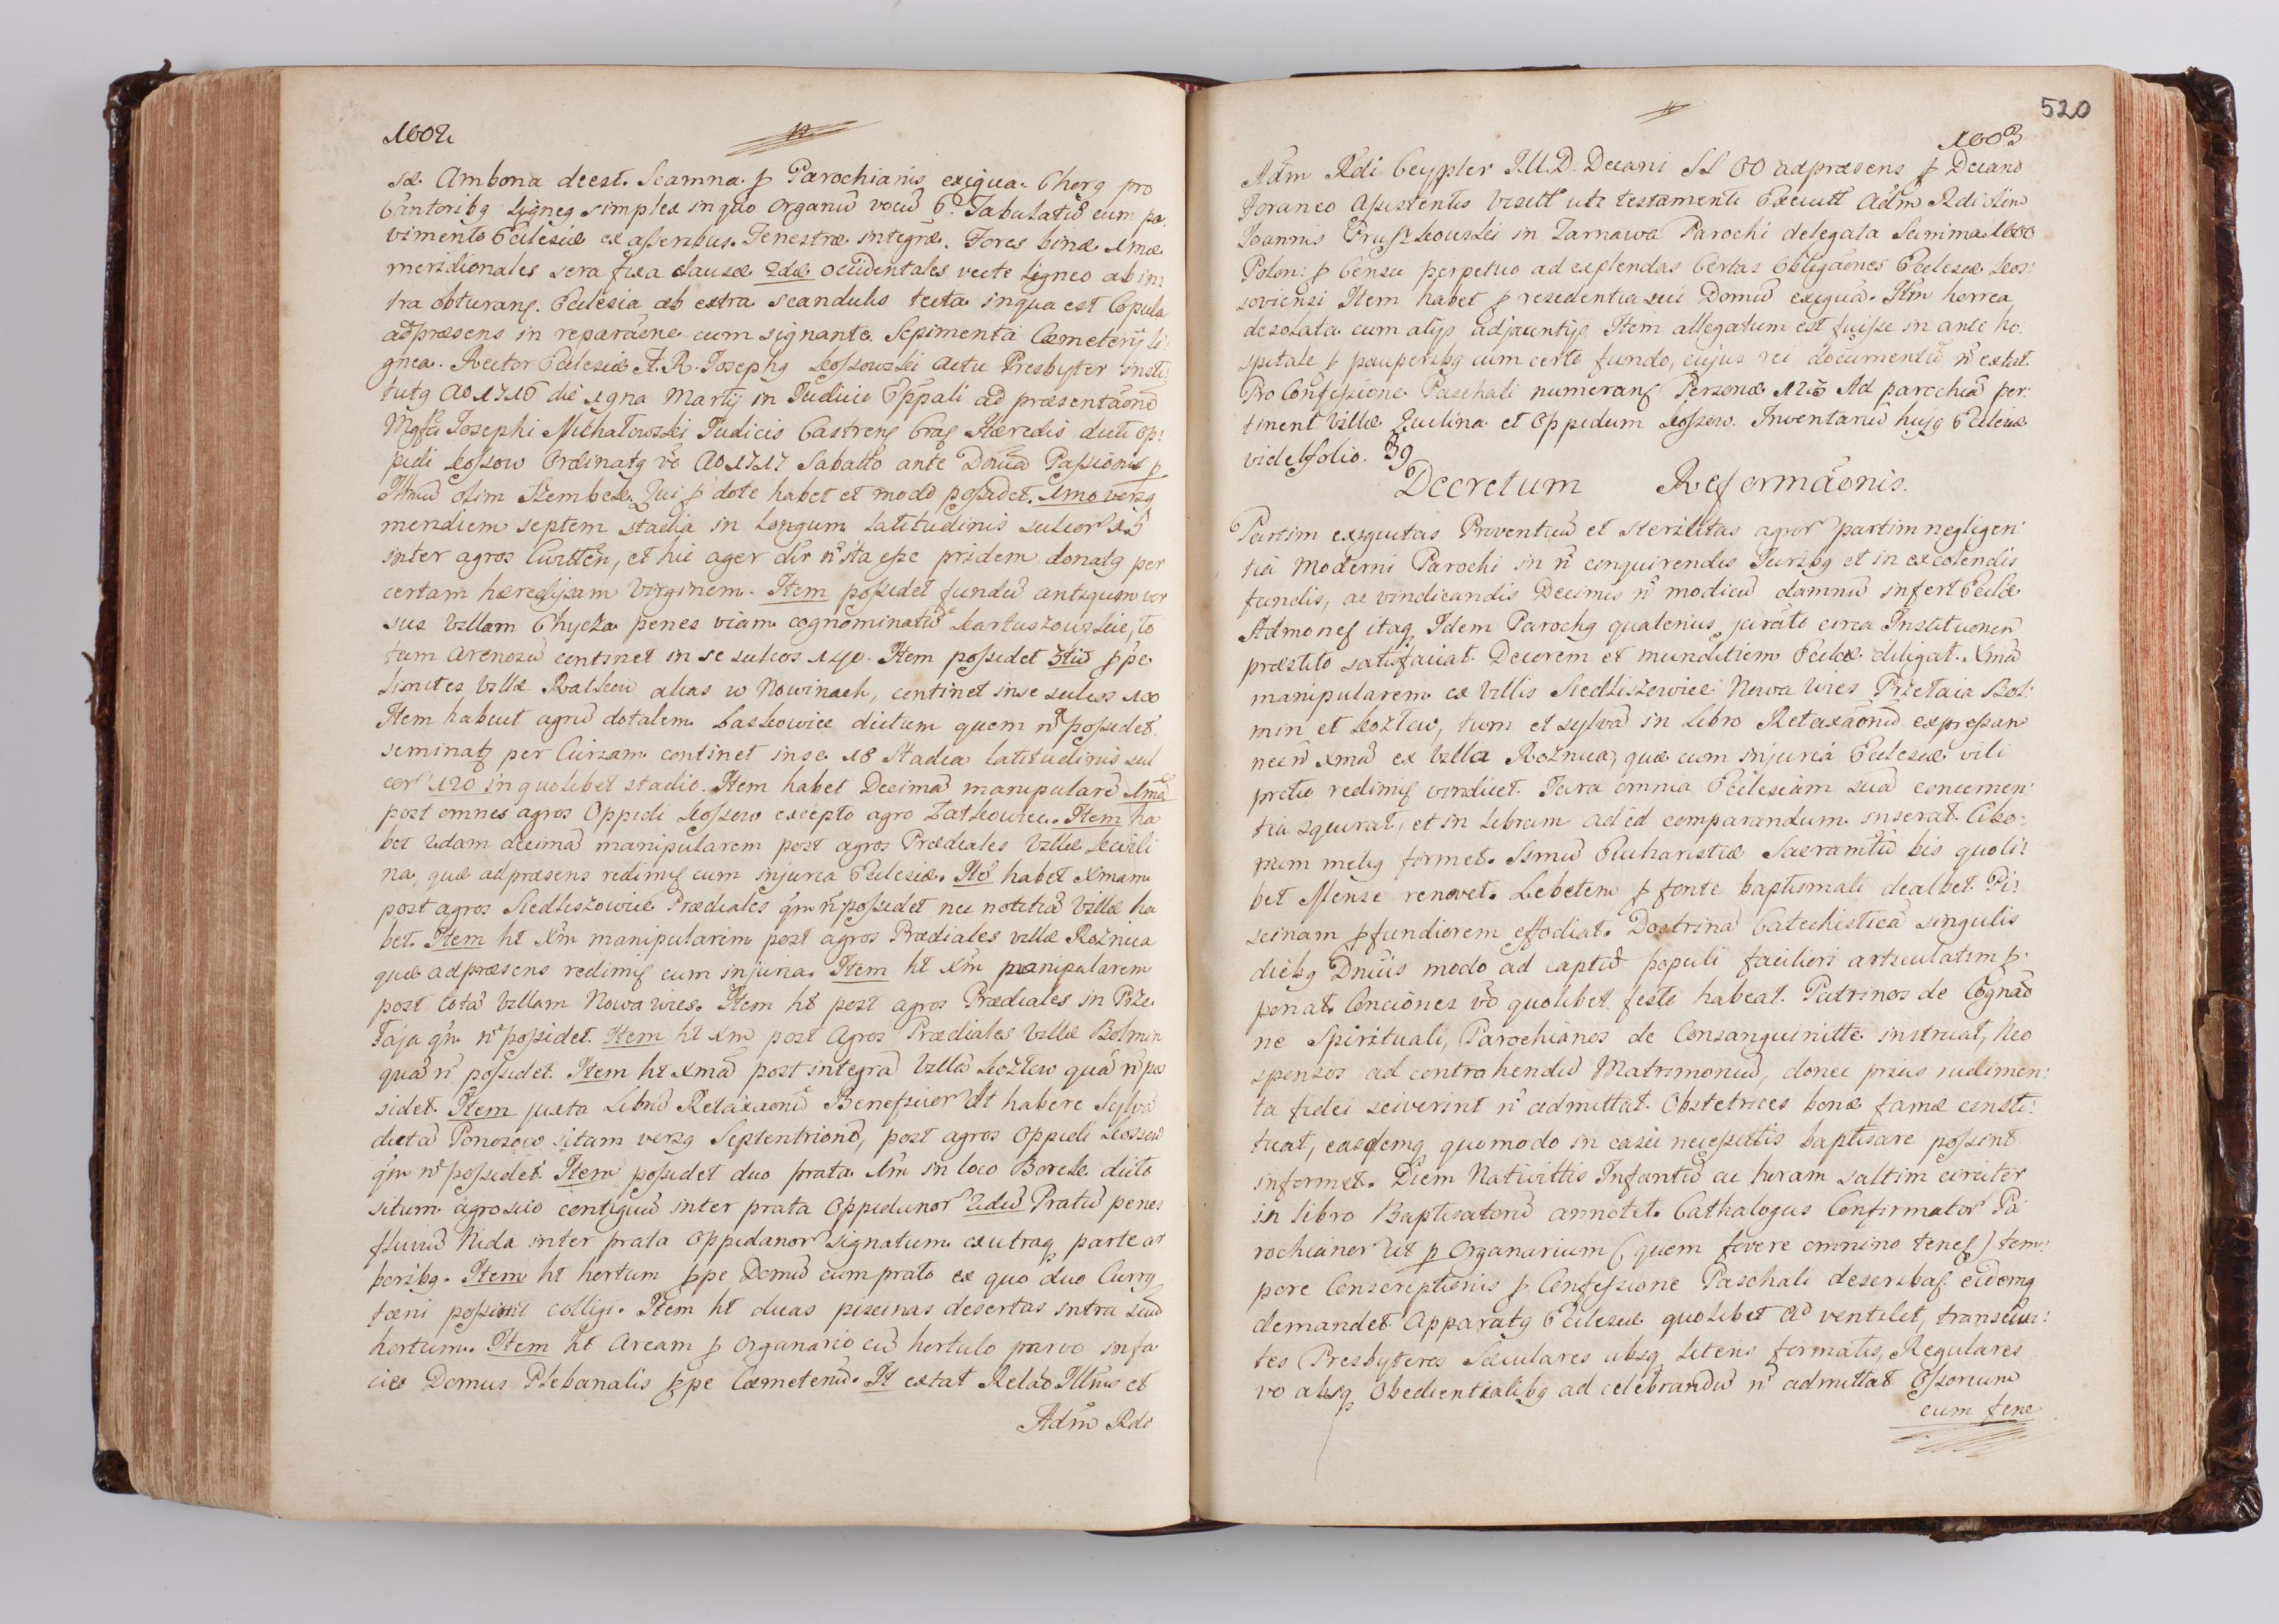 1602
sæ. Ambona deest. Scamna p Parochianis exigua. Chorq pro
Cantoribq ligneq simplex in quo Organũ vocũ 6. Tabulatũ cum pa:
vimento Ecclesiæ ex asseribus. Fenestræ integræ. Fores binæ 1mæ
meridionales sera fixa clausæ 2dæ occidentales vecte ligneo ab in:
tra obturanƺ. Ecclesia ab extra scandulis tecta in qua est Copula
ad præsens in reparãone cum signante. Sepimenta Cæmeterij li:
gnea. Rector Ecclesiæ A. R. Josephq Kossowski actu Presbyter insti:
tutq Aō 1716 die 1gna Martij in Judicio Eppali ad præsentãonē
Mgfci Josephi Michałowski Judicis Castrenƺ Craƺ Hæredis dicti op:
pidi Kossow Ordinatq vō Aō 1717 Sabatto ante Dnicã Passionis p
Illmũ olim Szembek. Qui p dote habet et modo possidet. 1mo versq
meridiem septem stadia in longum latitudinis sulcor 15
inter agros Curiēn, et hic ager dir nͦ ita esse pridem donatq per
certam hæredissam virginem. Item possidet fundũ antiquum ver
sus villam Chycza penes viam cognominatũ Kartuszowskie, to
tum arenosũ continet in se sulcos 140. Item possidet 3tiũ ppe
limites villæ Rathow alias w Nowinach, continet in se sulcos 100
Item habuit agrũ dotalem Laskowice dictum quem nͦ possidet.
seminatƺ per Curiam continet in se 18 stadia latitudinis sul
cor 120 in quolibet stadio. Item habet Decimã manipularē 1mã
post omnes agros Oppidi Kossow excepto agro Latkowice. Item ha
bet 2dam decimã manipularem post agros Prædiales Villæ Kwili
na, quæ ad præsens redimiƺ cum injuria Ecclesiæ. Itē habet Xmam
post agros Siedliszowice Prædiales qm nͦ possidet nec notitiã Villæ ha
bet. Item ht Xm manipularem post agros Prædiales villæ Rożnica
quæ ad præsens redimiƺ cum injuria. Item ht Xm manipularem
post totã Villam Nowa wies. Item ht post agros Prædiales in Prze
łaja qm nͦ possidet. Item ht Xm post Agros Prædiales Villæ Bolmin
quã nͦ possidet. Item ht Xmã post integrã Villã Kozłow quã nͦ pos
sidet. Item juxta Librũ Retaxãonũ Beneficior dt habere Sylvã
dictã Ponosow sitam versq Septentrionē, post agros Oppidi Kossow
qm nͦ possidet. Item possidet duo prata 1m in loco Borek dicto
situm agro suo contiguũ inter prata Oppidanor 2dũ Pratũ penes
fluviũ Nida inter prata Oppidanor signatum ex utraq parte ar
boribq. Item ht hortum ppe Domũ cum prato ex quo duo Currq
fæni possint colligi. Item ht duas piscinas desertas intra suũ
hortum. Item ht Aream p Organario cũ hortulo parvo in fa
cie Domus Plebanalis ppe Cæmeteriũ. It extat Relão Illmis et
Adm Rdi
520
1603
Adm Rdi Ceypler J.U.D. Decani SS OO ad præsens p Decano
Foraneo Assistentis Visitt uti testamenti Executt Adm Rdi olim
Joannis Pruszkowski in Tarnawa Parochi delegata Summa 1600
Polon: p Censu perpetuo ad explendas Certas Obligãones Ecclesiæ Kos:
soviensi Item habet p residentia sui Domũ exiguã. Itm horrea
desolata cum alijs adjacentijs. Item allegatum est fuisse in ante ho:
spitale p pauperibq cum certo fundo, cujus rei documentũ nͦ extat.
Pro Confessione Paschali numeranƺ Personæ 123 Ad parochiã per:
tinent Villæ Qwilina et Oppidum Kossow. Inventariũ hujq Ecclesiæ
vide folio. 39
Decretum Reformãonis.
Partim exiguitas Proventuũ et sterilitas agror partim negligen:
tia Moderni Parochi in nͦ conquirendis Juribq et in excolendis
fundis, ac vindicandis Decimis nͦ modicũ damnũ infert Ecclæ
Admoneƺ itaq Idem Parochq quatenus jurãto circa Institutionem
præstito satisfaciat. Decorem et munditiem Ecclæ diligat. Xmã
manipularem ex Villis Siedliszowice Nowa Wies Przełaia Bol:
min et Kozłow, tum et sylvã in Libro Retaxãonũ expressam
necñ Xmã ex Villa Rożnica, quæ cum injuria Ecclesiæ vili
pretio redimiƺ vindicet. Jura omnia Ecclesiam suã concernen:
tia exquirat, et in Librum ad id comparandum inserat. Cibo:
rium meliq formet. Ssmũ Eucharistiæ Sacramtũ bis quoli:
bet Mense renovet. Lebetem p fonte baptismali dealbet. Pi:
scinam pfundiorem effodiat. Doctrinã Catechisticã singulis
diebq Dnicis modo ad captũ populi faciliori articulatim p:
ponat. Conciones vō quolibet festo habeat. Patrinos de Cognão
ne Spirituali, Parochianos de Consanguinitte instruat, Neo
sponsos ad contrahendũ Matrimoniũ, donec prius rudimen:
ta fidei sciverint nͦ admittat. Obstetrices bonæ famæ consti:
tuat, easdemq quomodo in casu necessitis baptisare possint
informet. Diem Nativittis Infantiũ ac horam saltim circiter
in libro Baptisatorũ annotet. Cathalogus Confirmator Pa
rochianor ut p Organarium (quem fovere omnino teneƺ) tem:
pore Conscriptionis p Confessione Paschali describaƺ eidemq
demandet. Apparatq Ecclesiæ quolibet Aō ventilet, transeun:
tes Presbyteros Sæculares absq Literis formatis, Regulares
vo absq Obedientialibq ad celebrandũ nͦ admittat Ossorium
cum fene